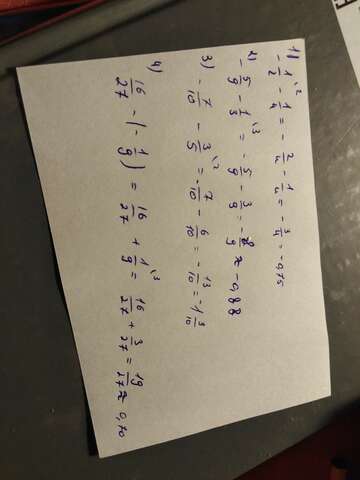 1) -1/2 ^{\2} - 1/4 = - 2/4 - 1/4 = - 3/4 = -0,75
2) - 5/9 - 1/3 ^{\3} = - 5/9 - 3/9 = - 8/9 ≈ -0,88
3) - 7/10 - 3/5 ^{\2} = - 7/10 - 6/10 = - 13/10 = -1 3/10
4)
16/27 - (- 1/9) = 16/27 + 1/9 ^{\3} = 16/27 + 3/27 = 19/27 ≈ 0,70